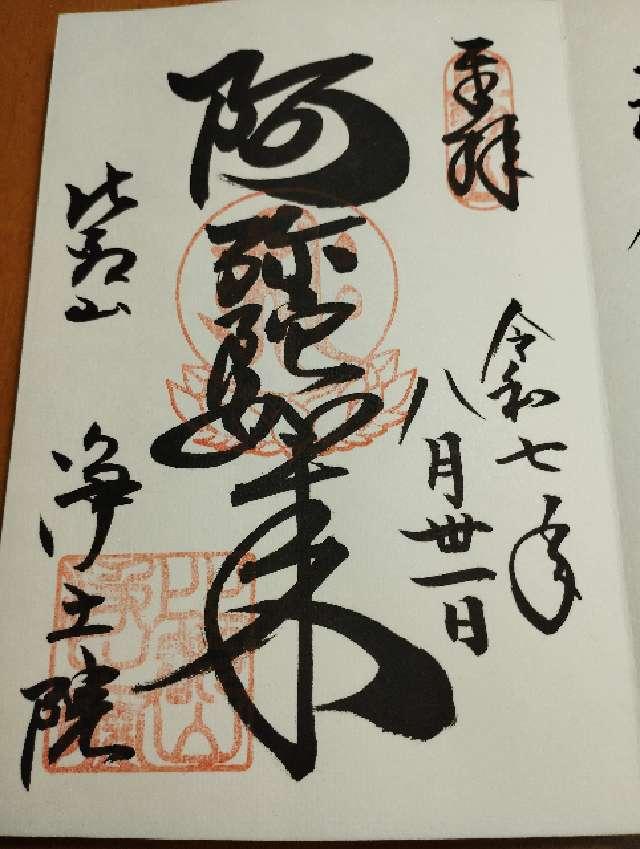 奉拝
令和七年
八月卅一日
阿弥陀如来
比叡山
浄土院